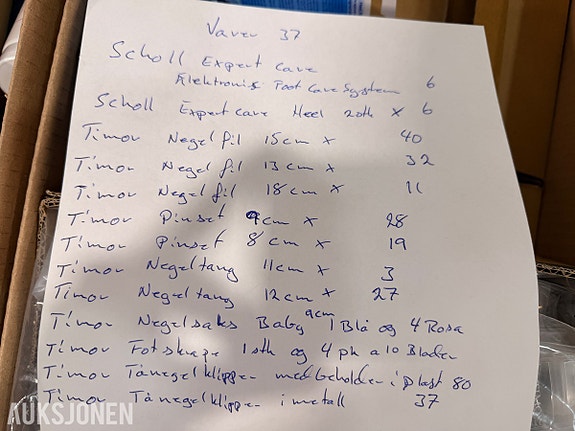 Varer 37
Scholl Expert Care
Elektronisk Foot Care System 6
Scholl Expert Care Heel 2oth x 6
Timor Negelfil 15cm x 40
Timor Negelfil 13cm x 32
Timor Negelfil 18cm x 11
Timor Pinset 9cm x 28
Timor Pinset 8cm x 19
Timor Negeltang 11cm x 3
Timor Negeltang 12cm x 27
Timor Negelsaks Baby 9cm 1 Blå og 4 Rosa
Timor Fotskrape 1 oth og 4 pk a 10 Blader
Timor Tånegelklipper med beholder i plast 80
Timor Tånegelklipper i metall 37
AUKSJONEN